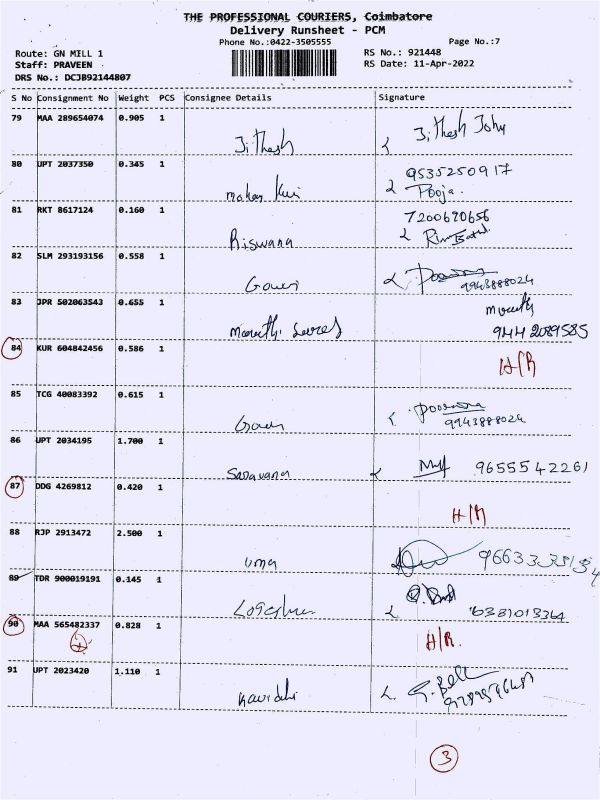 THE PROFESSIONAL COURIERS, Coimbatore
Delivery Runsheet - PCM
Phone No.:0422-3505555
Page No.:7
Route: GN MILL 1
Staff: PRAVEEN
DRS No.: DCJB92144807
RS No.: 921448
RS Date: 11-Apr-2022
S No Consignment No Weight PCS Consignee Details Signature
79 MAA 289654074 0.905 1
Jithesh Jithesh John
80 UPT 2037350 0.345 1
9535250917
Pooja.
81 RKT 8617124 0.160 1
7200620656
Riswana
82 SLM 293193156 0.558 1
Gowri
9943888024
83 JPR 502063543 0.655 1
9442089585
84 KUR 604842456 0.586 1
H/R
85 TCG 40083392 0.615 1
9943888024
86 UPT 2034195 1.700 1
Saravana 9655542261
87 DDG 4269812 0.420 1
H/R
88 RJP 2913472 2.500 1
uma
89 TDR 900019191 0.145 1
90 MAA 565482337 0.828 1
H/R.
91 UPT 2023420 1.110 1
3